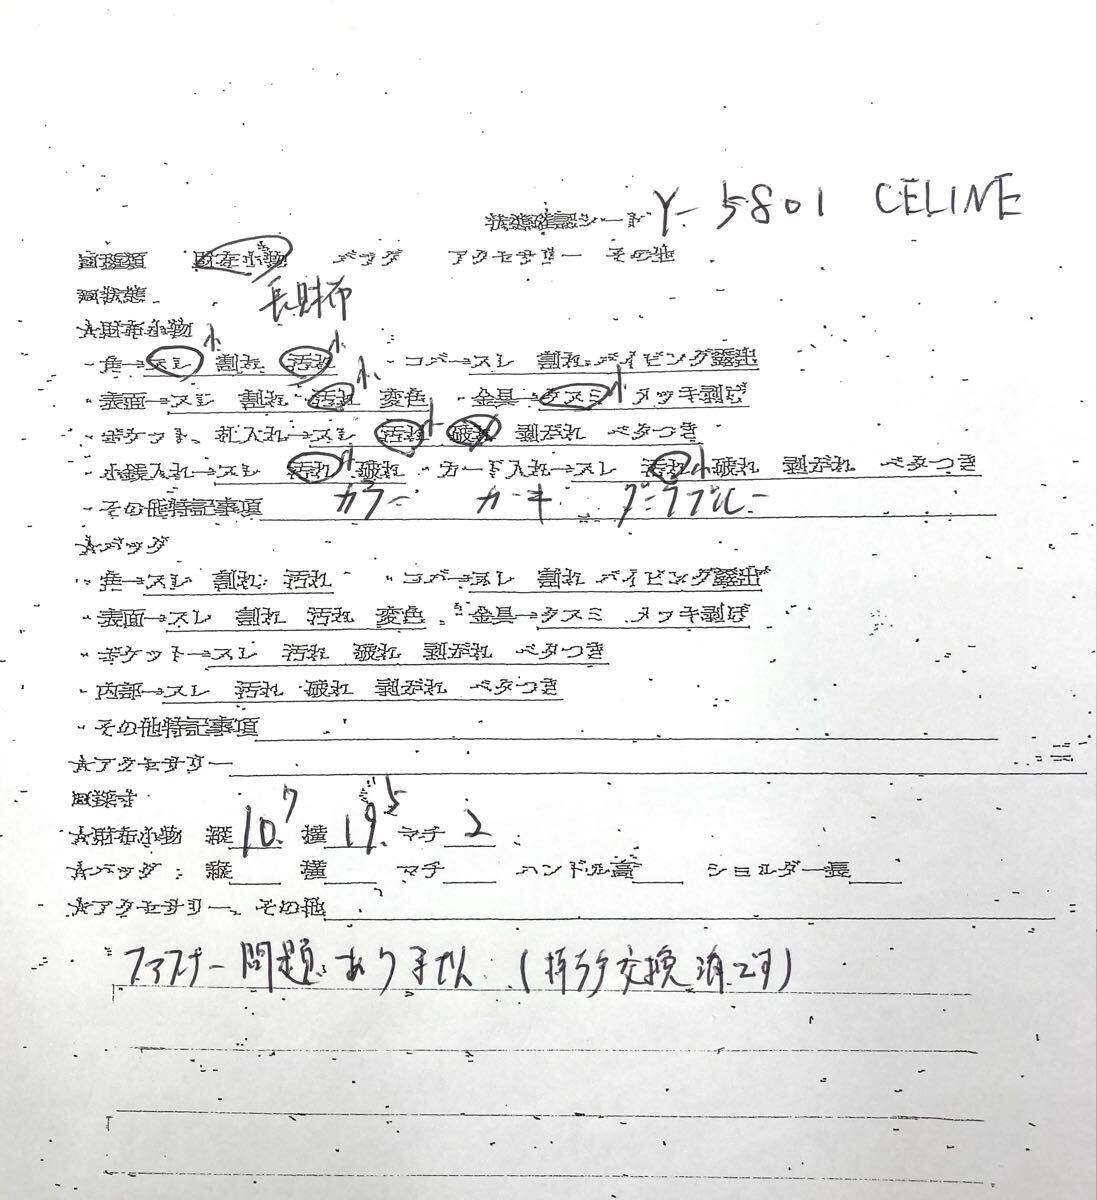 状態確認シート Y-5801 CELINE
□種類 財布小物 バッグ アクセサリー その他
長財布
□状態
☆財布小物
・角→スレ小 割れ 汚れ小 ・コバ→スレ 割れ パイピング露出
・表面→スレ 割れ 汚れ小 変色 ・金具→クスミ小 メッキ剥げ
・ポケット、札入れ→スレ 汚れ小 破れ 剥がれ ベタつき
・小銭入れ→スレ 汚れ小 破れ ・カード入れ→スレ 汚れ小 破れ 剥がれ ベタつき
・その他特記事項 カラー カーキ ダークブルー
☆バッグ
・角→スレ 割れ 汚れ ・コバ→スレ 割れ パイピング露出
・表面→スレ 割れ 汚れ 変色 ・金具→クスミ メッキ剥げ
・ポケット→スレ 汚れ 破れ 剥がれ ベタつき
・内部→スレ 汚れ 破れ 剥がれ ベタつき
・その他特記事項
☆アクセサリー
□採寸
☆財布小物 縦10.7 横19.5 マチ2
☆バッグ 縦 横 マチ ハンドル高 ショルダー長
☆アクセサリー、その他
ファスナー問題ありません (持ち手交換済です)